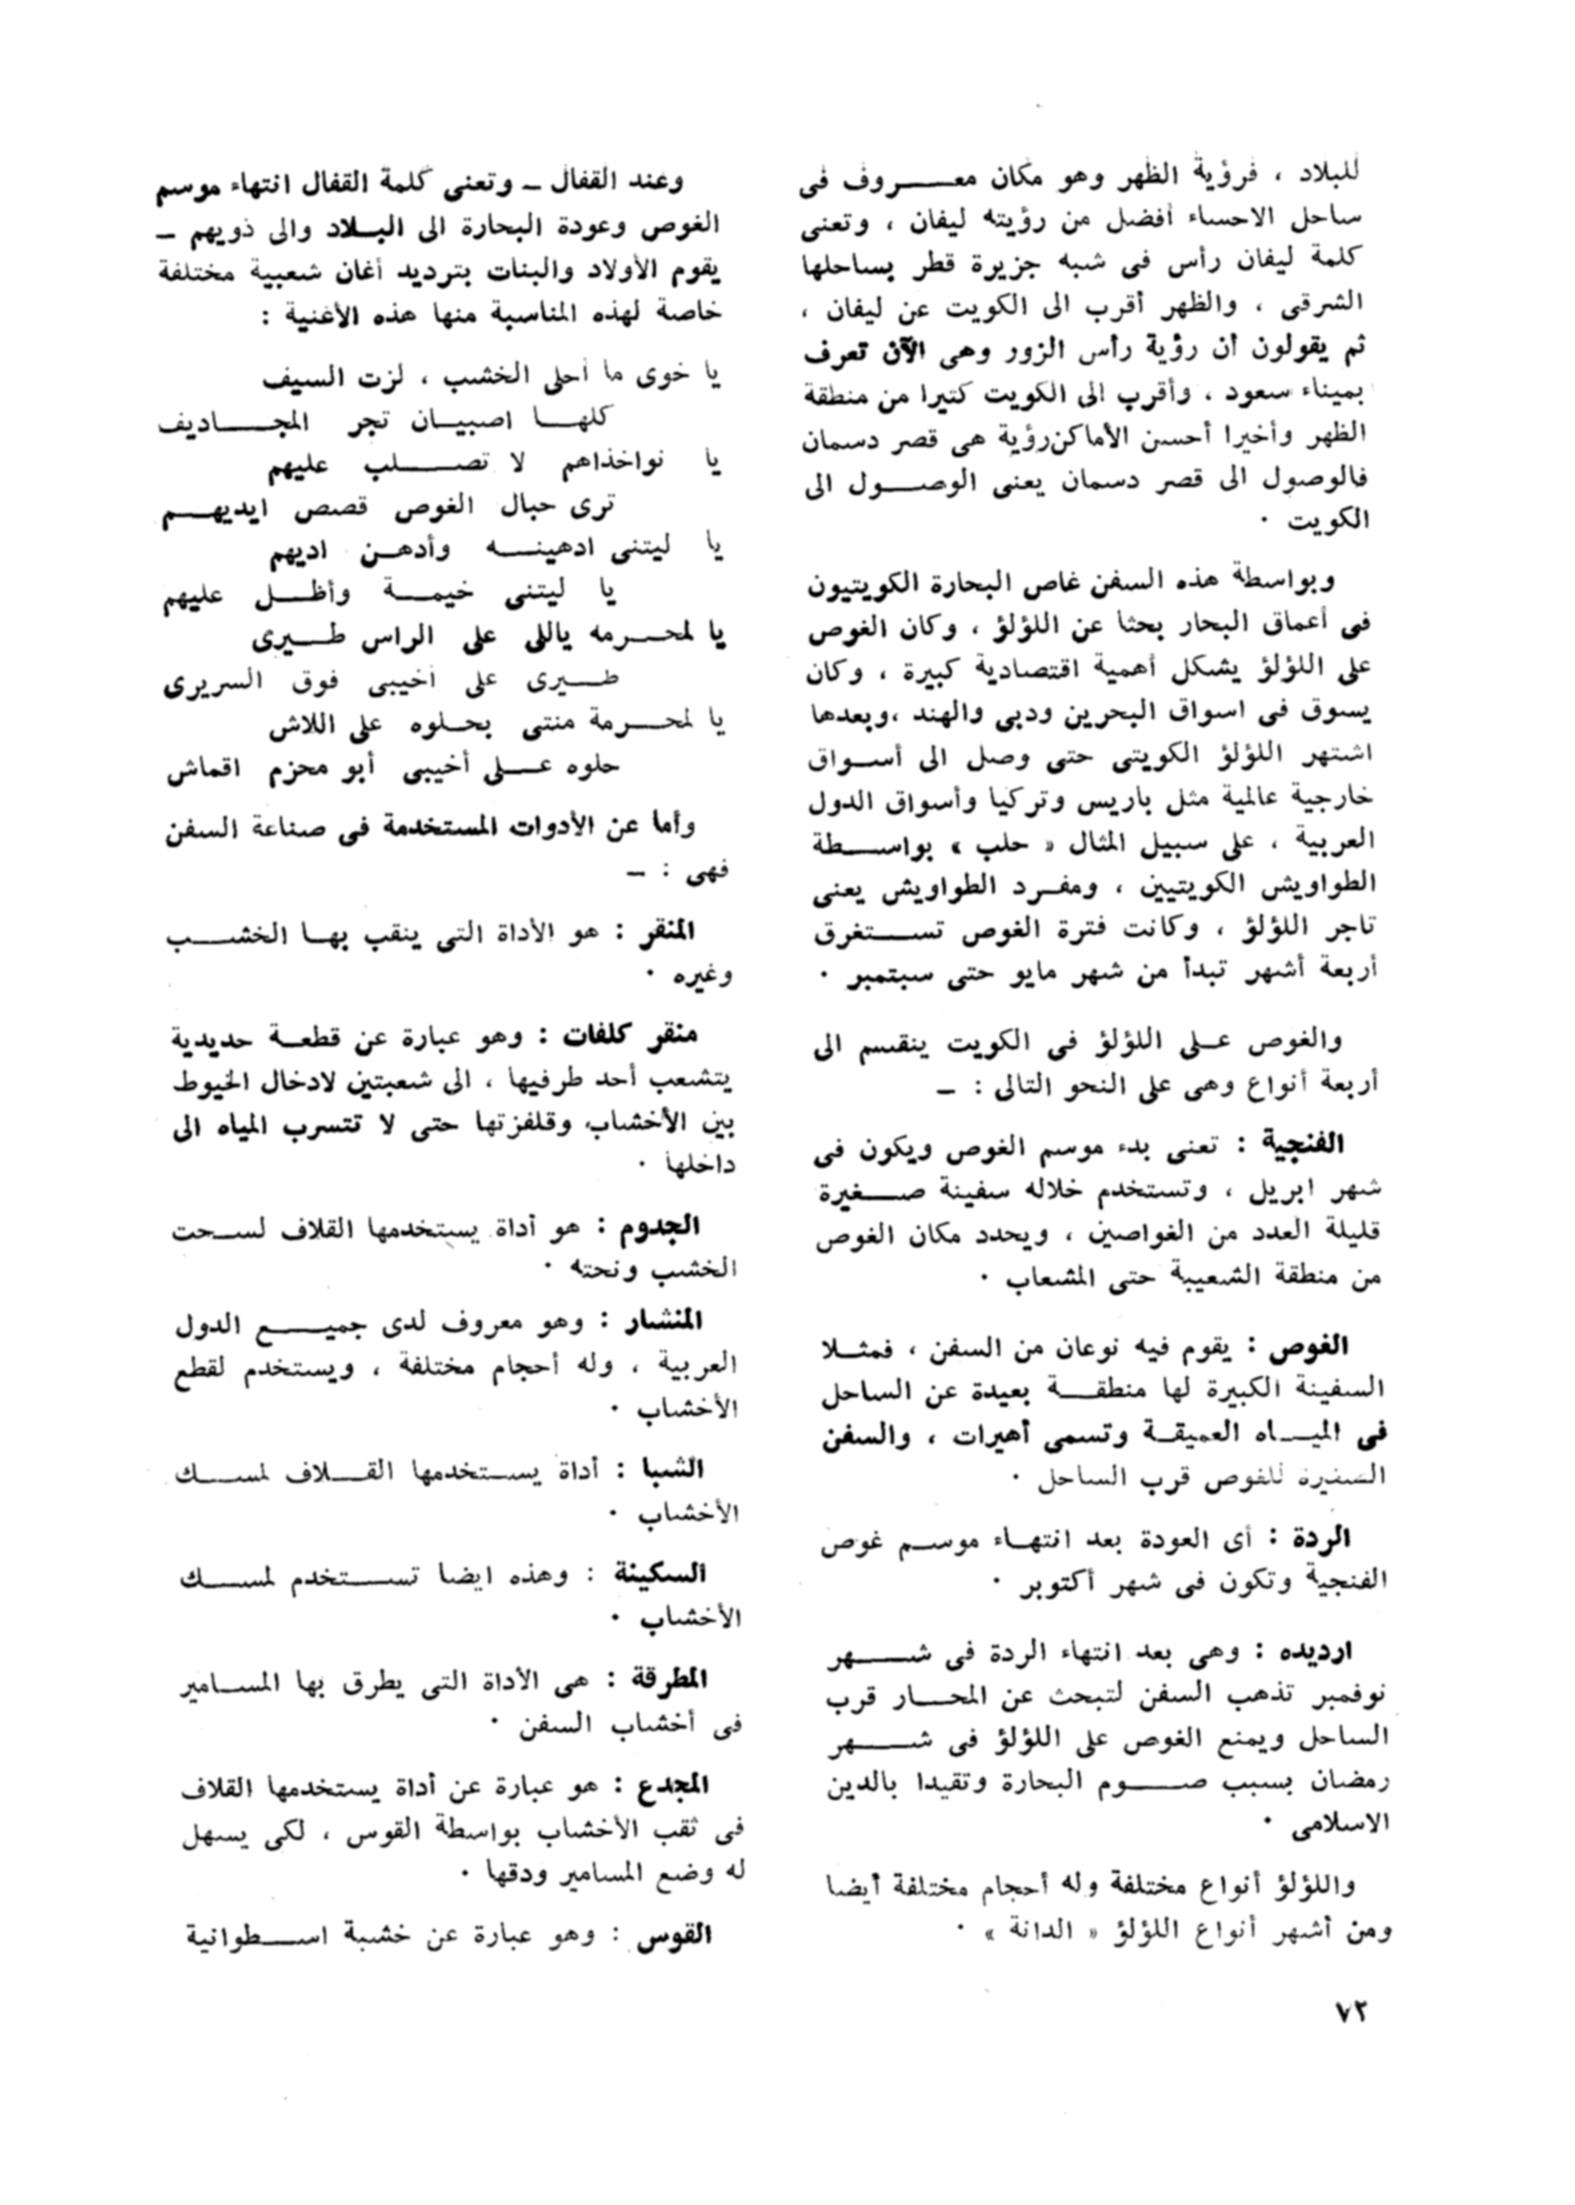 للبلاد ، فرؤية الظهر وهو مكان معروف فى
ساحل الاحساء أفضل من رؤيته ليفان ، وتعنى
كلمة ليفان رأس فى شبه جزيرة قطر بساحلها
الشرقى ، والظهر أقرب الى الكويت عن ليفان ،
ثم يقولون أن رؤية رأس الزور وهى الآن تعرف
بميناء سعود ، وأقرب الى الكويت كثيرا من منطقة
الظهر وأخيرا أحسن الأماكن رؤية هى قصر دسمان
فالوصول الى قصر دسمان يعنى الوصول الى
الكويت ٠
وبواسطة هذه السفن غاص البحارة الكويتيون
فى أعماق البحار بحثا عن اللؤلؤ ، وكان الغوص
على اللؤلؤ يشكل أهمية اقتصادية كبيرة ، وكان
يسوق فى اسواق البحرين ودبى والهند ،وبعدها
اشتهر اللؤلؤ الكويتى حتى وصل الى أسواق
خارجية عالمية مثل باريس وتركيا وأسواق الدول
العربية ، على سبيل المثال « حلب » بواسطة
الطواويش الكويتيين ، ومفرد الطواويش يعنى
تاجر اللؤلؤ ، وكانت فترة الغوص تستغرق
أربعة أشهر تبدأ من شهر مايو حتى سبتمبر ٠
والغوص على اللؤلؤ فى الكويت ينقسم الى
أربعة أنواع وهى على النحو التالى : ـ
الفنجية : تعنى بدء موسم الغوص ويكون فى
شهر ابريل ، وتستخدم خلاله سفينة صغيرة
قليلة العدد من الغواصين ، ويحدد مكان الغوص
من منطقة الشعيبة حتى المشعاب ٠
الغوص : يقوم فيه نوعان من السفن ، فمثلا
السفينة الكبيرة لها منطقة بعيدة عن الساحل
فى المياه العميقة وتسمى أهيرات ، والسفن
الصغيرة للغوص قرب الساحل ٠
الردة : أى العودة بعد انتهاء موسم غوص
الفنجية وتكون فى شهر أكتوبر ٠
ارديده : وهى بعد انتهاء الردة فى شهر
نوفمبر تذهب السفن لتبحث عن المحار قرب
الساحل ويمنع الغوص على اللؤلؤ فى شهر
رمضان بسبب صوم البحارة وتقيدا بالدين
الاسلامى ٠
واللؤلؤ أنواع مختلفة وله أحجام مختلفة أيضا
ومن أشهر أنواع اللؤلؤ « الدانة » ٠
وعند القفال ـ وتعنى كلمة القفال انتهاء موسم
الغوص وعودة البحارة الى البلاد والى ذويهم ـ
يقوم الأولاد والبنات بترديد أغان شعبية مختلفة
خاصة لهذه المناسبة منها هذه الأغنية :
يا خوى ما أحلى الخشب ، لزت السيف
كلها اصبيان تجر المجاديف
يا نواخذاهم لا تصلب عليهم
ترى حبال الغوص قصص ايديهم
يا ليتنى ادهينه وأدهن اديهم
يا ليتنى خيمة وأظل عليهم
يا لمحرمه ياللى على الراس طيرى
طيرى على أخيبى فوق السريرى
يا لمحرمة منتى بحلوه على اللاش
حلوه على أخيبى أبو محزم اقماش
وأما عن الأدوات المستخدمة فى صناعة السفن
فهى : ـ
المنقر : هو الأداة التى ينقب بها الخشب
وغيره ٠
منقر كلفات : وهو عبارة عن قطعة حديدية
يتشعب أحد طرفيها ، الى شعبتين لادخال الخيوط
بين الأخشاب، وقلفزتها حتى لا تتسرب المياه الى
داخلها ٠
الجدوم : هو أداة يستخدمها القلاف لسحت
الخشب ونحته ٠
المنشار : وهو معروف لدى جميع الدول
العربية ، وله أحجام مختلفة ، ويستخدم لقطع
الأخشاب ٠
الشبا : أداة يستخدمها القلاف لمسك
الأخشاب ٠
السكينة : وهذه ايضا تستخدم لمسك
الأخشاب ٠
المطرقة : هى الأداة التى يطرق بها المسامير
فى أخشاب السفن ٠
المجدع : هو عبارة عن أداة يستخدمها القلاف
فى ثقب الأخشاب بواسطة القوس ، لكى يسهل
له وضع المسامير ودقها ٠
القوس : وهو عبارة عن خشبة اسطوانية
٧٢